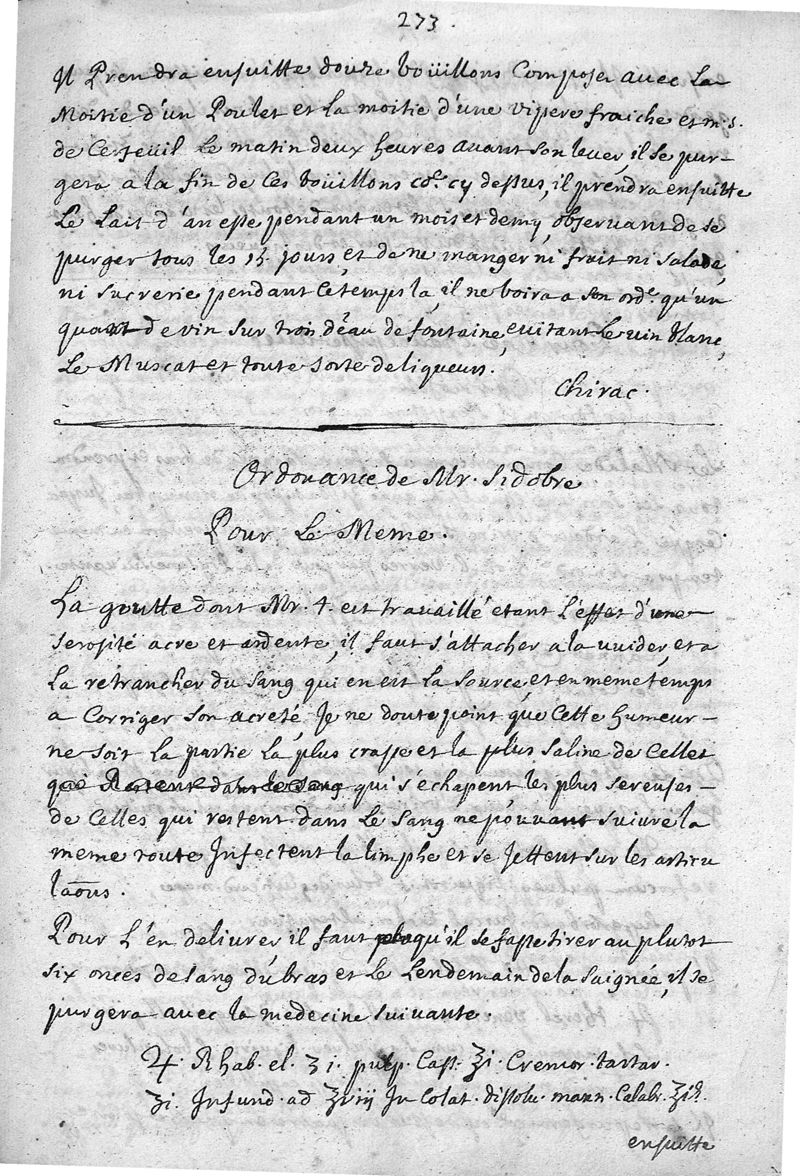 273.
Il Prendra ensuitte douze boüillons Composer avec La
Moitié d'un Poulet et La moitié d'une vipere fraiche et m: s.
de Cerfeüil Le matin deux heures avant son lever, il se pur-
gera a la fin de Ces boüillons coe. cy dessus, il prendra ensuitte
Le Lait d'anesse pendant un mois et demy, observant de se
purger tous les 15. jours, et de ne manger ni fruit ni salade,
ni sucrerie pendant Ce temps la, il ne boira a son orde. qu'un
quart de vin sur trois d'eau de fontaine, evitant Le vin blanc,
Le Muscat et toute sorte de liqueurs.
Chirac.
Ordonance de Mr. Sidobre
Pour Le Meme.
La goutte dont Mr. t. est travaillé étant L'effet d'une
serosité acre et ardente, il faut s'attacher a la vuider, et a
La retrancher du sang qui en est La source, et en meme temps
a Corriger son acreté, Je ne doute point que Cette humeur
ne soit La partie La plus crasse et la plus saline de Celles
qui s'échapent les plus sereuses
de Celles qui restent dans Le sang ne pouvant suivre la
meme route Infectent la limphe et se Jettent sur les articu
laõns.
Pour L'en delivrer il faut qu'il se fasse tirer au plutot
six onces de sang du bras et Le Lendemain de la saignée, il se
purgera avec la medecine suivante.
♃. Rhab. el. ʒi. pulp. Cass. ℥i. Cremor. tartar.
ʒi. Infund. ad ℥viij In Colat. dissolv. mann. Calabr. ℥iß.
ensuitte